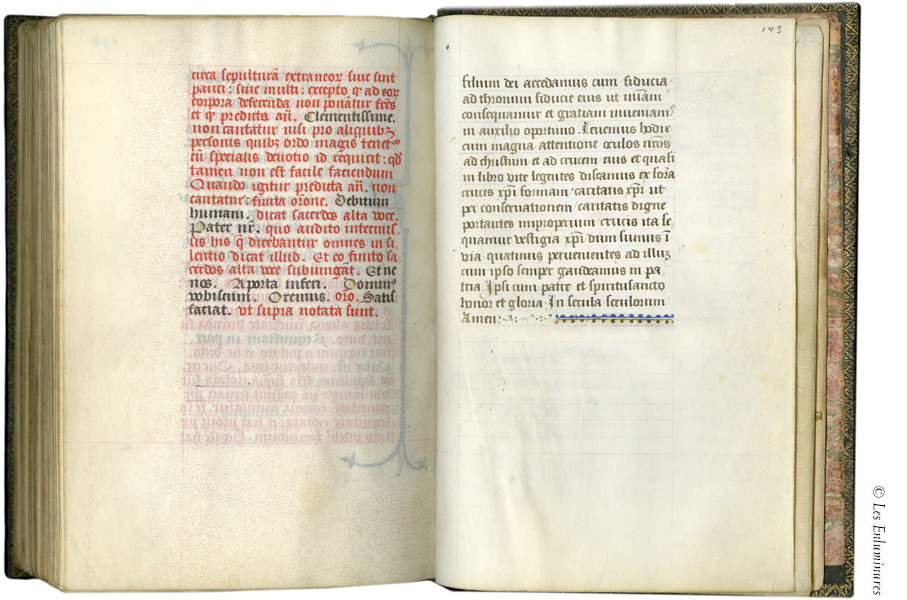 circa sepulturā extraneoꝝ siue sint
pauci : siue multi : excepto qꝫ ad eoꝝ
corpora deferenda non ponātur frēs
et qꝫ predicta añ. Clementissime.
non cantatur nisi pro aliquibꝫ
personis quibꝫ ordo magis tenetᷣ
cū specialis deuotio id requirit : qđ
tamen non est facile faciendum
Quando igitur predicta añ. non
cantatur : finita orōne. Debitum
humani. dicat sacerdos alta voce.
Pater nr̄. quo audito intermis-
sis his q̄ dicebantur omnes in si
lentio dicat illud. Et eo finito sa
cerdos alta voce subiungāt. Et ne
nos. A porta inferi. Dominꝰ
vobiscum. Oremus. oro. Satis
faciat. vt supra notata sunt.
143
filium dei accedamus cum fiducia
ad thronum fiducie eius ut mīam
consequamur et gratiam inueniamꝰ
in auxilio oportuno. Leuemus hodie
cum magna attentione oculos nr̄os
ad christum et ad crucem eius et quasi
in libro vite legentes discamus ex sora
crucis xp̄i formam caritatis xp̄i ut
per conseruationem caritatis digne
portantes improperium crucis ita se
quamur vestigia xp̄i dum sumus ī
via quatinus peruenientes ad illuꝫ
cum ipso semper gaudeamus in pa
tria Ipsi cum patre et spiritusancto
honor et gloria. In secula seculorum
Amen :
© Les Enluminures